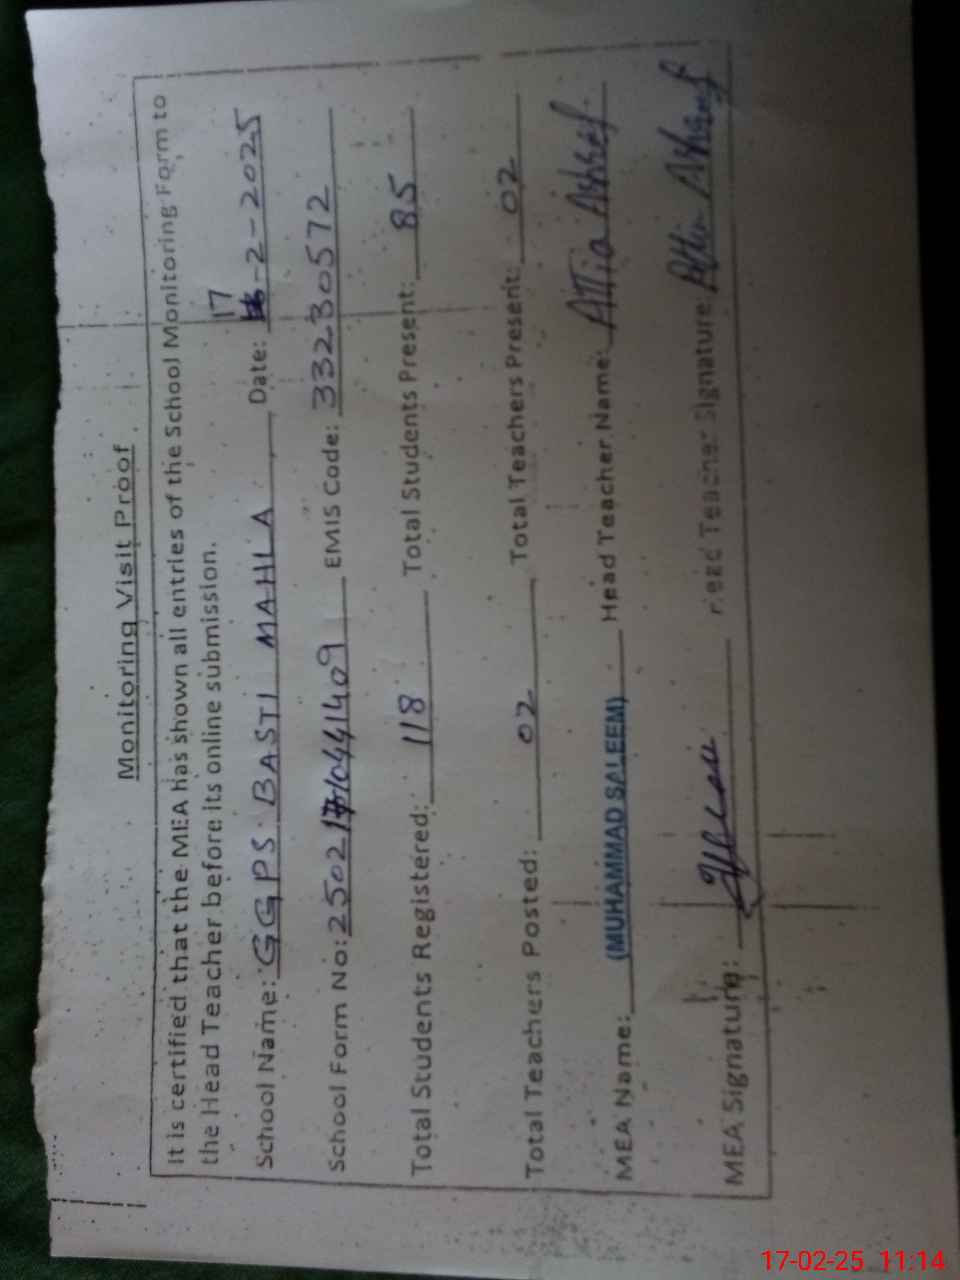 Monitoring Visit Proof
It is certified that the MEA has shown all entries of the School Monitoring Form to
the Head Teacher before its online submission.
School Name: GGPS BASTI MAHLA Date: 17-2-2025
School Form No: 250217104441409 EMIS Code: 33230572
Total Students Registered: 118 Total Students Present: 85
Total Teachers Posted: 02 Total Teachers Present: 02
MEA Name: (MUHAMMAD SALEEM) Head Teacher Name: ATTia Ashraf
MEA Signature: Head Teacher Signature Attia Ashraf
17-02-25 11:14